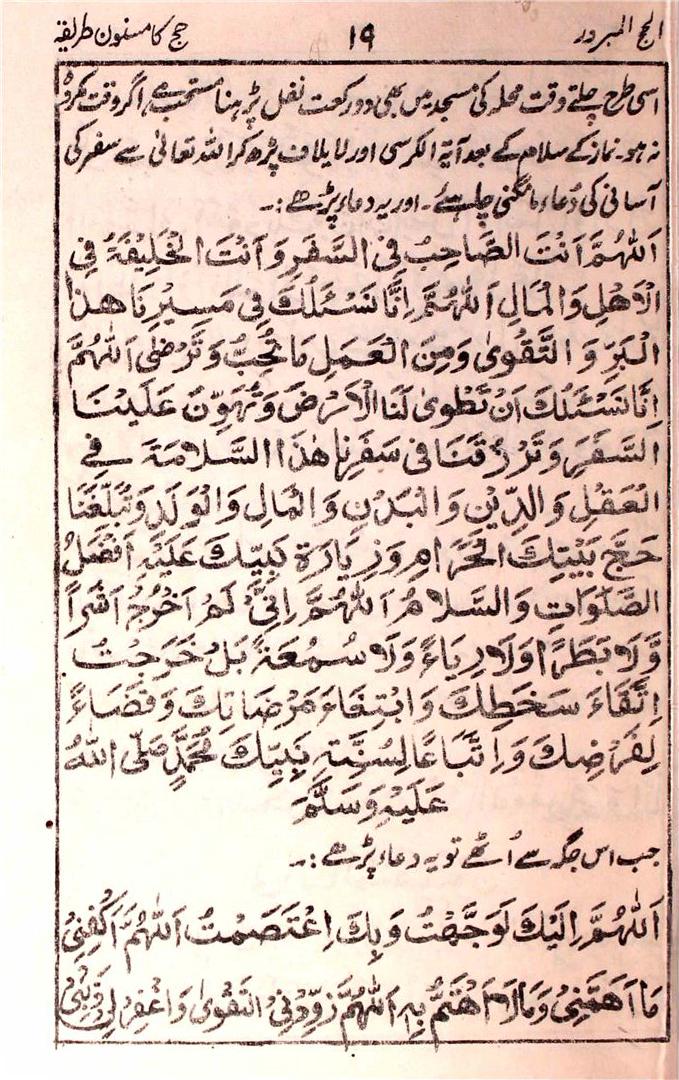 الحج المبرور ۱۹ حج کا مسنون طریقہ
اسی طرح چلتے وقت محلہ کی مسجد میں بھی دو رکعت نفل پڑہنا مستحب ہے، اگر وقت مکروہ
نہ ہو۔ نماز کے سلام کے بعد آیۃ الکرسی اور لایلاف پڑھ کر اللہ تعالیٰ سے سفر کی
آسانی کی دُعاء مانگنی چاہئے۔ اور یہ دعاء پڑھے:۔
اَللّٰهُمَّ اَنْتَ الصَّاحِبُ فِی السَّفَرِ وَ اَنْتَ الْخَلِیْفَةُ فِی
الْاَهْلِ وَالْمَالِ اَللّٰهُمَّ اِنَّا نَسْئَلُكَ فِی مَسِیْرِنَا هٰذَا
الْبَرَّ وَ التَّقْوٰی وَمِنَ الْعَمَلِ مَا تُحِبُّ وَ تَرْضٰی اَللّٰهُمَّ
اِنَّا نَسْئَلُكَ اَنْ تَطْوِیَ لَنَا الْاَرْضَ وَ تُهَوِّنَ عَلَیْنَا
السَّفَرَ وَ تَرْزُقَنَا فِی سَفَرِنَا هٰذَا السَّلَامَةَ فِے
الْعَقْلِ وَ الدِّیْنِ وَ الْبَدَنِ وَ الْمَالِ وَ الْوَلَدِ وَ تُبَلِّغَنَا
حَجَّ بَیْتِكَ الْحَرَامِ وَ زِیَارَةِ نَبِیِّكَ عَلَیْهِ اَفْضَلُ
الصَّلَوَاتِ وَ السَّلَامُ اَللّٰهُمَّ اِنِّیْ لَمْ اَخْرُجْ اَشَرًا
وَّلَا بَطَرًا وَلَا رِیَاءً وَلَا سُمْعَةً بَلْ خَرَجْتُ
اِتِّقَاءَ سَخَطِكَ وَ ابْتِغَاءَ مَرْضَاتِكَ وَ قَضَاءً
لِفَرْضِكَ وَ اِتِّبَاعًا لِسُنَّةِ نَبِیِّكَ مُحَمَّدٍ صَلَّی اللّٰهُ
عَلَیْهِ وَسَلَّمَ
جب اس جگہ سے اُٹھے تو یہ دعاء پڑھے:۔
اَللّٰهُمَّ اِلَیْكَ تَوَجَّهْتُ وَ بِكَ اِعْتَصَمْتُ اَللّٰهُمَّ اَكْفِنِیْ
مَا اَهَمَّنِیْ وَ مَا لَا اَهْتَمُّ بِهٖ اَللّٰهُمَّ زَوِّدْنِی التَّقْوٰی وَ اغْفِرْ لِیْ ذَنْبِیْ